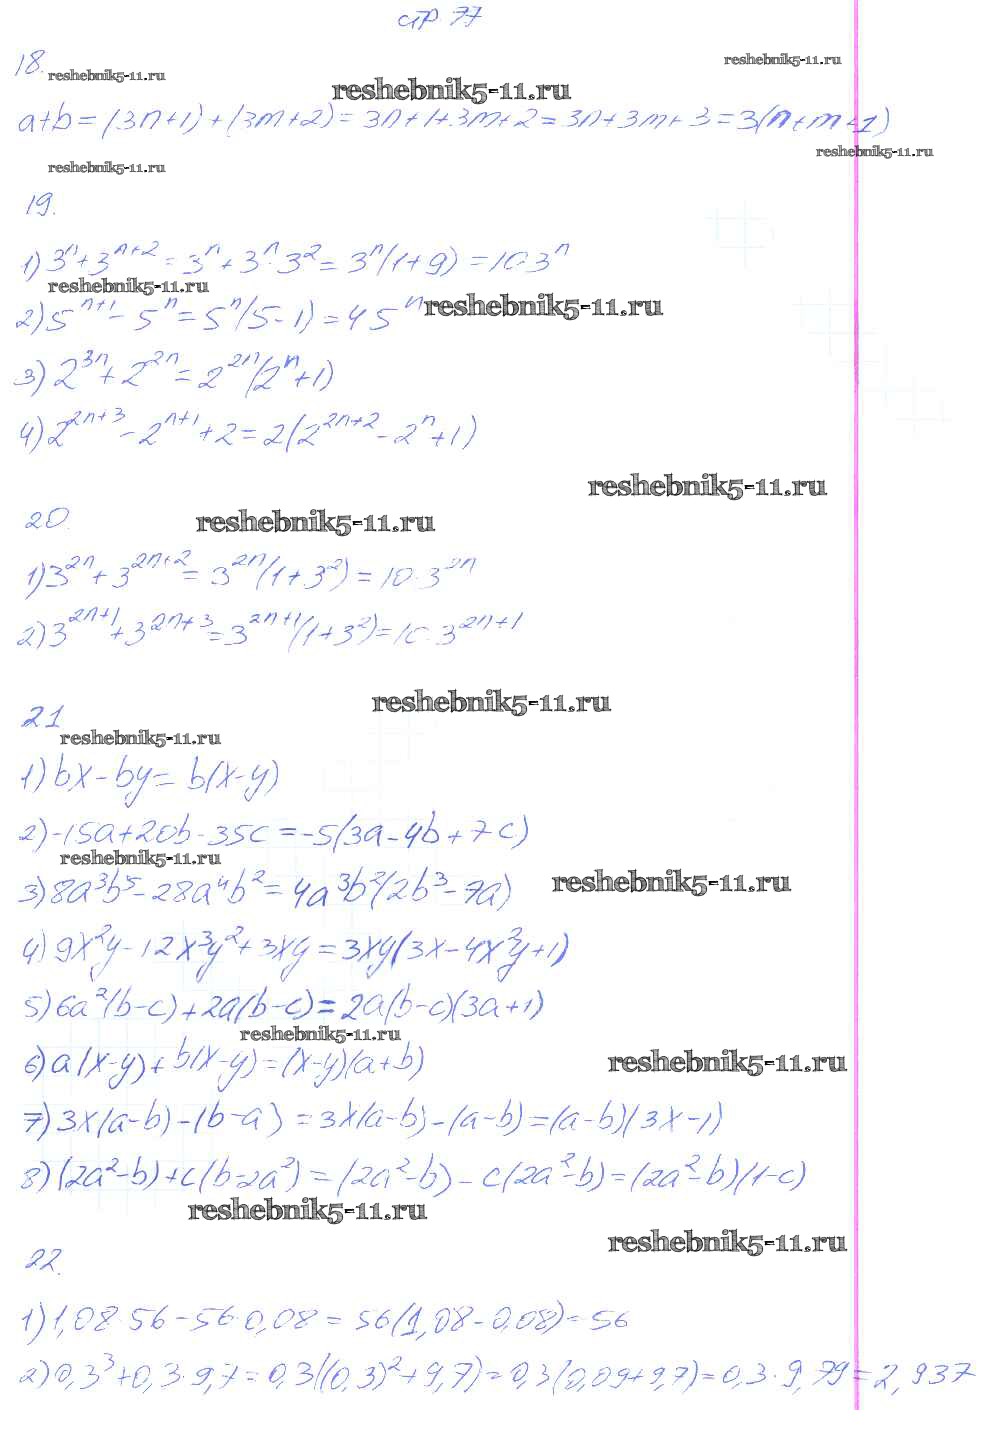 стр. 77
18.
reshebnik5-11.ru
reshebnik5-11.ru
reshebnik5-11.ru
a+b=(3n+1)+(3m+2)=3n+1+3m+2=3n+3m+3=3(n+m+1)
reshebnik5-11.ru
reshebnik5-11.ru
19.
1) 3ⁿ+3ⁿ⁺²=3ⁿ+3ⁿ·3²=3ⁿ(1+9)=10·3ⁿ
reshebnik5-11.ru
reshebnik5-11.ru
2) 5ⁿ⁺¹-5ⁿ=5ⁿ(5-1)=4·5ⁿ
3) 2³ⁿ+2²ⁿ=2²ⁿ(2ⁿ+1)
4) 2²ⁿ⁺³-2ⁿ⁺¹+2=2(2²ⁿ⁺²-2ⁿ+1)
reshebnik5-11.ru
20.
reshebnik5-11.ru
1) 3²ⁿ+3²ⁿ⁺²=3²ⁿ(1+3²)=10·3²ⁿ
2) 3²ⁿ⁺¹+3²ⁿ⁺³=3²ⁿ⁺¹(1+3²)=10·3²ⁿ⁺¹
reshebnik5-11.ru
21
reshebnik5-11.ru
1) bx-by=b(x-y)
2) -15a+20b-35c=-5(3a-4b+7c)
reshebnik5-11.ru
3) 8a³b⁵-28a⁴b²=4a³b²(2b³-7a)
reshebnik5-11.ru
4) 9x²y-12x³y²+3xy=3xy(3x-4x²y+1)
5) 6a²(b-c)+2a(b-c)=2a(b-c)(3a+1)
reshebnik5-11.ru
6) a(x-y)+b(x-y)=(x-y)(a+b)
reshebnik5-11.ru
7) 3x(a-b)-(b-a)=3x(a-b)-(a-b)=(a-b)(3x-1)
8) (2a²-b)+c(b-2a²)=(2a²-b)-c(2a²-b)=(2a²-b)(1-c)
reshebnik5-11.ru
reshebnik5-11.ru
22.
1) 1,08·56-56·0,08=56(1,08-0,08)=56
2) 0,3³+0,3·9,7=0,3((0,3)²+9,7)=0,3(0,09+9,7)=0,3·9,79=2,937